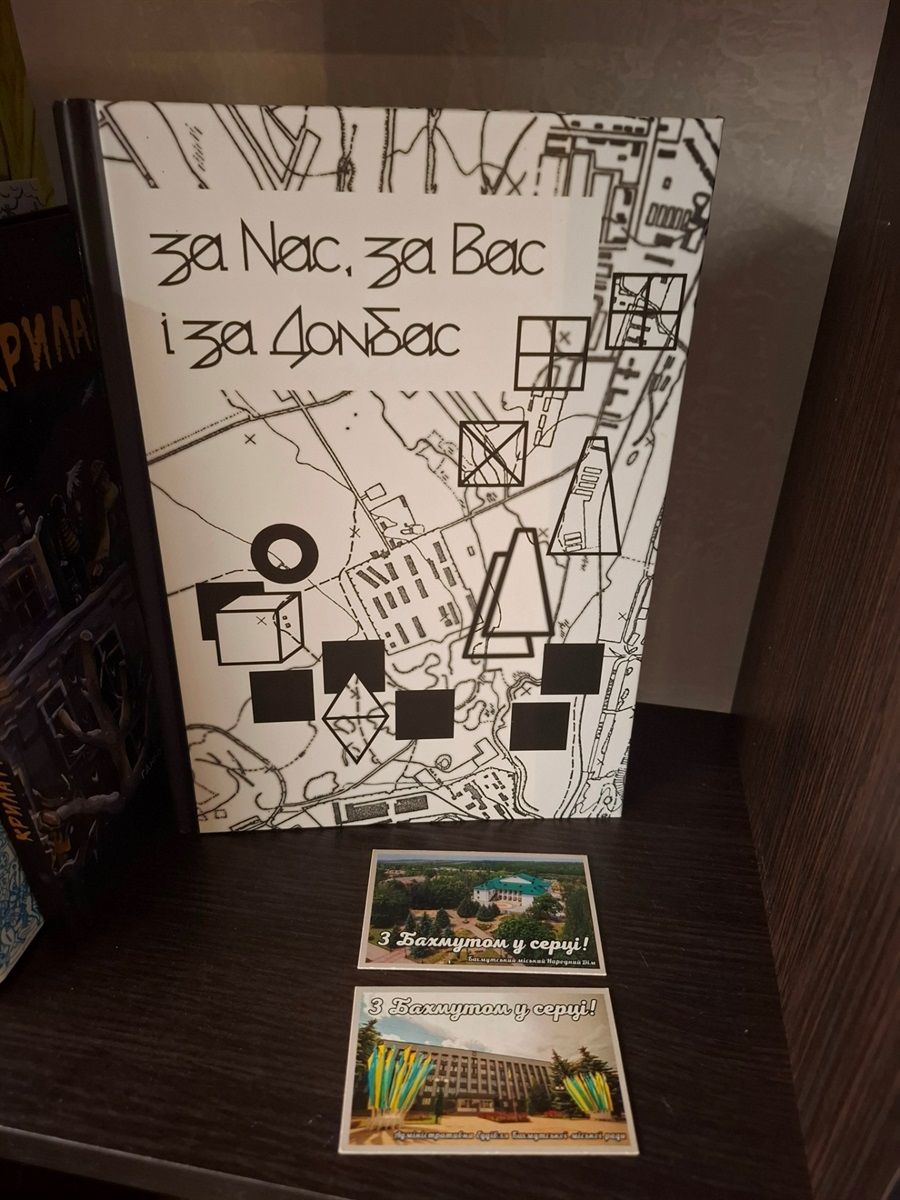 за Nас, за Вас
і за Донбас
КРИЛА
З Бахмутом у серці!
Бахмутський міський Народний Дім
З Бахмутом у серці!
Адміністративна будівля Бахмутської міської ради